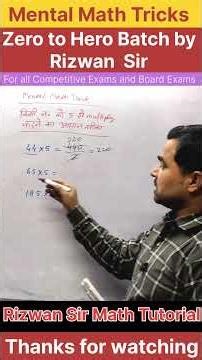 Mental Math Tricks
Zero to Hero Batch by
Rizwan Sir
For all Competitive Exams and Board Exams
Mental Math Trick
किसी no. को 5 से multiply
करने का आसान तरीका
220
44×5 = 440 = 220
2
65×5 =
185
Rizwan Sir Math Tutorial
Thanks for watching